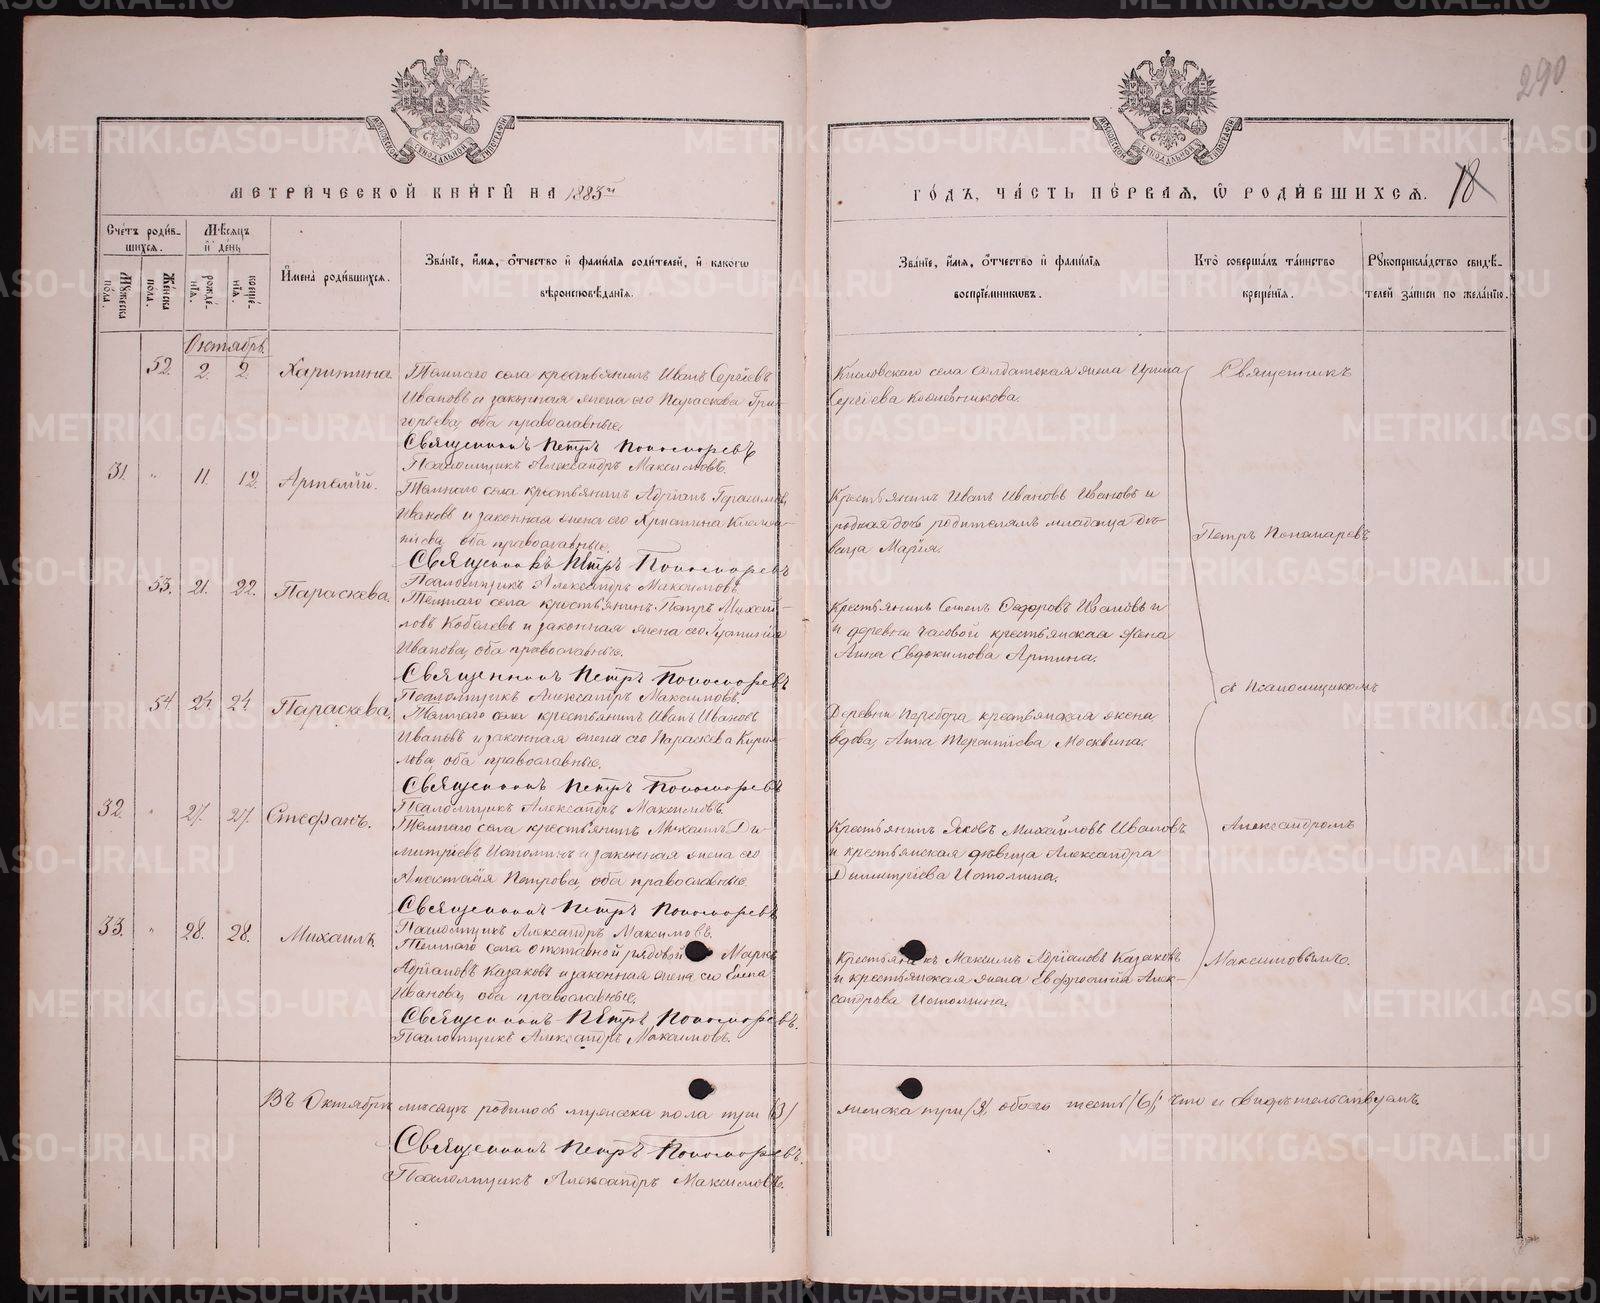 290
МОСКОВСКОЙ СѴНОДАЛЬНОЙ ТИПОГРАФІИ
МОСКОВСКОЙ СѴНОДАЛЬНОЙ ТИПОГРАФІИ
МЕТРИ́ЧЕСКОЙ КНИ́ГИ НА 1883й
ГО́ДЪ, ЧА́СТЬ ПЕ́РВАЯ, Ѽ РОДИ́ВШИХСЯ.
18
Сче́тъ роди́вшихся.
Мꙋжеска по́ла.
Же́нска по́ла.
Мѣсяцъ и де́нь
рожде́нія.
креще́нія.
И҆мена̀ роди́вшихся.
Зва́ніе, и҆́мя, ѻ҆́тчество и҆ фами́лія роди́телей, и҆ како́гѡ
вѣроисповѣ́данія.
Зва́ніе, и҆́мя, ѻ҆́тчество и҆ фами́лія
воспріе́мникѡвъ.
Кто̀ соверша́лъ та́инство
креще́нія.
Рꙋкоприкла́дство свидѣ́-
телей за́писи по жела́нію.
Октябрь
52. 2. 2. Харитина.
Темнаго села крестьянинъ Иванъ Сергѣевъ
Ивановъ и законная жена его Параскева Гри-
горьева, оба православные.
Священникъ Петръ Пономаревъ
Псаломщикъ Александръ Максимовъ.
Кисловскаго села солдатская жена Ирина
Сергѣева
Священникъ
31. " 11. 12. Артемій.
Темнаго села крестьянинъ Адріанъ Герасимовъ
Ивановъ и законная жена его Христина
оба православные.
Священникъ Петръ Пономаревъ
Псаломщикъ Александръ Максимовъ.
Крестьянинъ Иванъ Ивановъ Ивановъ и
родная дочь родителямъ младенца дѣ-
вица Марія.
Петръ Пономаревъ
53. 21. 22. Параскева.
Темнаго села крестьянинъ Петръ Михай-
ловъ Кобелевъ и законная жена его
Иванова, оба православные.
Священникъ Петръ Пономаревъ
Псаломщикъ Александръ Максимовъ.
Крестьянинъ Семенъ Ѳедоровъ Ивановъ и
и деревни Часовой крестьянская жена
Анна Евдокимова Артина.
съ Псаломщикомъ
54. 24. 24. Параскева.
Темнаго села крестьянинъ Иванъ Ивановъ
Ивановъ и законная жена его Параскева Кирил-
лова, оба православные.
Священникъ Петръ Пономаревъ
Псаломщикъ Александръ Максимовъ.
Деревни Перебора крестьянская жена
вдова, Анна Терентіева Москвина.
32. " 27. 27. Стефанъ.
Темнаго села крестьянинъ Михаилъ Ди-
митріевъ Истоминъ и законная жена его
Анастасія Петрова, оба православные.
Священникъ Петръ Пономаревъ
Псаломщикъ Александръ Максимовъ.
Крестьянинъ Яковъ Михайловъ Ивановъ
и крестьянская дѣвица Александра
Димитріева Истомина.
Александромъ
33. " 28. 28. Михаилъ.
Темнаго села отставной рядовой Маркъ
Адріановъ Казаковъ и законная жена его Елена
Иванова, оба православные.
Священникъ Петръ Пономаревъ.
Псаломщикъ Александръ Максимовъ.
Крестьянинъ Максимъ Адріановъ Казаковъ
и крестьянская жена Евфросинія Алек-
сандрова Истомина.
Максимовымъ.
Въ Октябрѣ мѣсяцѣ родилось мужеска пола три (3)
женска три (3) обоего шесть (6); что и свидѣтельствуемъ.
Священникъ Петръ Пономаревъ.
Псаломщикъ Александръ Максимовъ.
METRIKI.GASO-URAL.RU